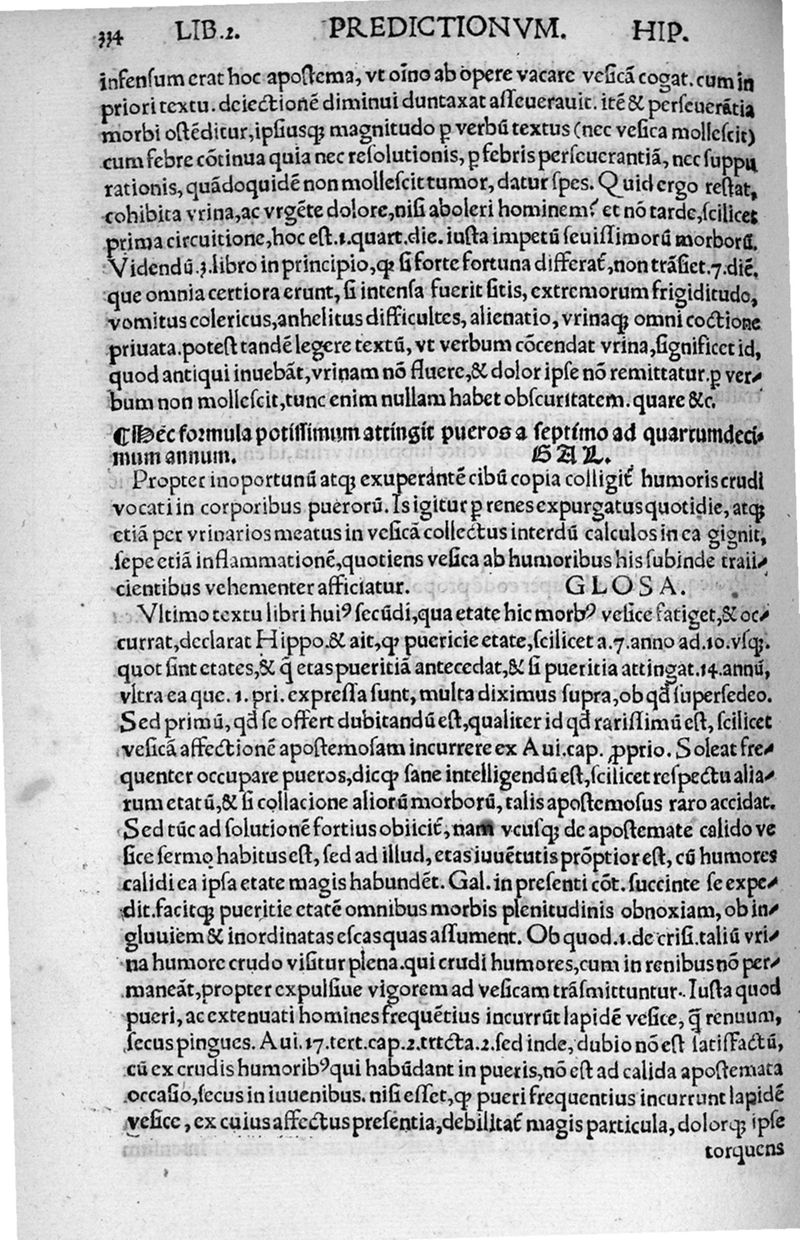 334 LIB.2. PREDICTIONVM. HIP.
infenſum erat hoc apoſtema, vt oĩno ab opere vacare veſicã cogat. cum in
priori textu. deiectionẽ diminui duntaxat aſſeuerauit. itẽ & perſeuerãtia
morbi oſtẽditur, ipſiusq; magnitudo p verbũ textus (nec veſica molleſcit)
cum febre cõtinua quia nec reſolutionis, p febris perſeuerantiã, nec ſuppu
rationis, quãdoquidẽ non molleſcit tumor, datur ſpes. Quid ergo reſtat,
cohibita vrina, ac vrgẽte dolore, niſi aboleri hominem? et nõ tarde, ſcilicet
prima circuitione, hoc eſt. 1. quart. die. iuſta impetũ ſeuiſſimorũ morborũ.
Videndũ. 3. libro in principio, ꝙ ſi forte fortuna differat̃, non trãſiet. 7. diẽ.
que omnia certiora erunt, ſi intenſa fuerit ſitis, extremorum frigiditudo,
vomitus colericus, anhelitus difficultes, alienatio, vrinaq; omni coctione
priuata. poteſt tandẽ legere textũ, vt verbum cõcendat vrina, ſignificet id,
quod antiqui inuebãt, vrinam nõ fluere, & dolor ipſe nõ remittatur. p ver⸗
bum non molleſcit, tunc enim nullam habet obſcuritatem. quare &c.
¶ Hec formula potiſſimum attingit pueros a ſeptimo ad quartumdeci⸗
mum annum. GAL.
Propter inoportunũ atq; exuperantẽ cibũ copia colligit̃ humoris crudi
vocati in corporibus puerorũ. Is igitur p renes expurgatus quotidie, atq;
etiã per vrinarios meatus in veſicã collectus interdũ calculos in ea gignit,
ſepe etiã inflammationẽ, quotiens veſica ab humoribus his ſubinde traii⸗
cientibus vehementer afficiatur. GLOSA.
Vltimo textu libri huiꝰ ſecũdi, qua etate hic morbꝰ veſice fatiget, & oc⸗
currat, declarat Hippo. & ait, ꝙ puericie etate, ſcilicet a. 7. anno ad. 10. vſq;.
quot ſint etates, & q̃ etas pueritiã antecedat, & ſi pueritia attingat. 14. annũ,
vltra ea que. 1. pri. expreſſa ſunt, multa diximus ſupra, ob qđ ſuperſedeo.
Sed primũ, qđ ſe offert dubitandũ eſt, qualiter id qđ rariſſimũ eſt, ſcilicet
veſicã affectionẽ apoſtemoſam incurrere ex Aui. cap. ꝓprio. Soleat fre⸗
quenter occupare pueros, dicꝙ ſane intelligendũ eſt, ſcilicet reſpectu alia⸗
rum etatũ, & ſi collacione aliorũ morborũ, talis apoſtemoſus raro accidat.
Sed tũc ad ſolutionẽ fortius obiicit̃, nam vcuſq; de apoſtemate calido ve
ſice ſermo habitus eſt, ſed ad illud, etas iuuẽtutis prõptior eſt, cũ humores
calidi ea ipſa etate magis habundẽt. Gal. in preſenti cõt. ſuccinte ſe expe⸗
dit. facitq; pueritie etatẽ omnibus morbis plenitudinis obnoxiam, ob in⸗
gluuiem & inordinatas eſcas quas aſſument. Ob quod. 1. de criſi. taliũ vri⸗
na humore crudo viſitur plena. qui crudi humores, cum in renibus nõ per⸗
maneãt, propter expulſiue vigorem ad veſicam trãſmittuntur. Iuſta quod
pueri, ac extenuati homines frequẽtius incurrũt lapidẽ veſice, q̃ renuum,
ſecus pingues. Aui. 17. tert. cap. 2. trtcta. 2. ſed inde, dubio nõ eſt ſatiſfactũ,
cũ ex crudis humoribꝰ qui habũdant in pueris, nõ eſt ad calida apoſtemata
occaſio, ſecus in iuuenibus. niſi eſſet, ꝙ pueri frequentius incurrunt lapidẽ
veſice, ex cuius affectus preſentia, debilitat̃ magis particula, dolorq; ipſe
torquens